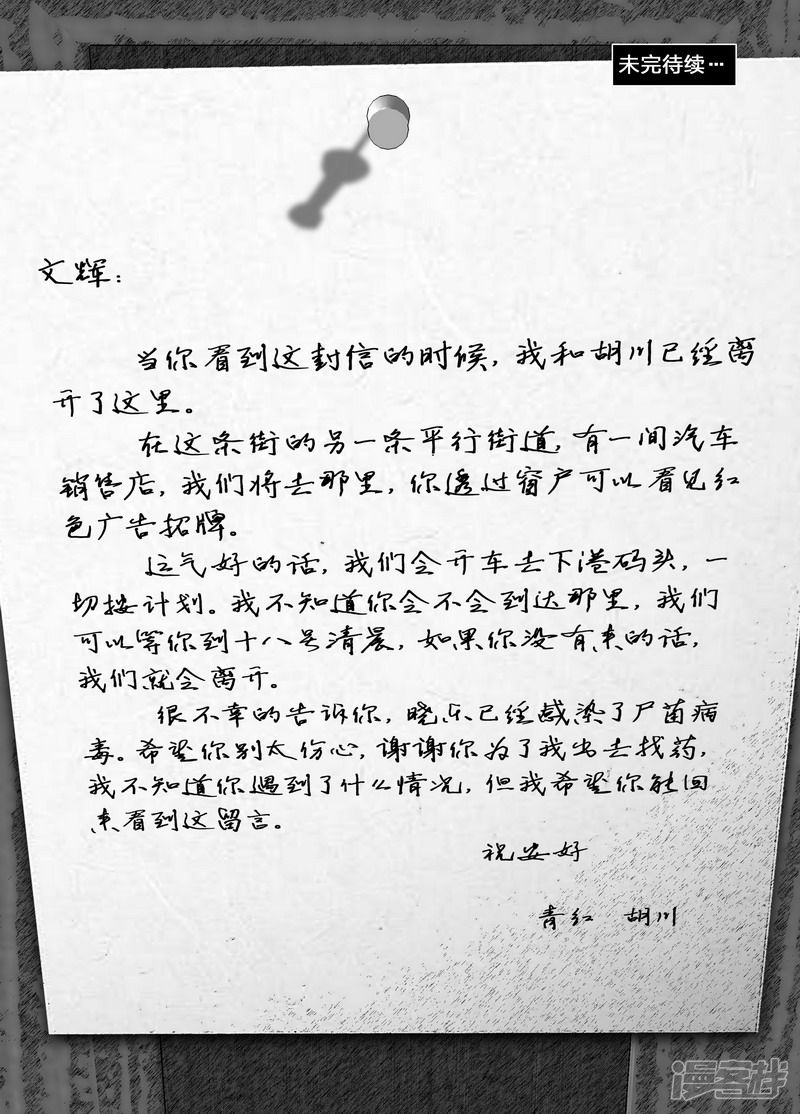 未完待续…
文辉：
当你看到这封信的时候，我和胡川已经离
开了这里。
在这条街的另一条平行街道，有一间汽车
销售店，我们将去那里，你透过窗户可以看见红
色广告招牌。
运气好的话，我们会开车去下港码头，一
切按计划。我不知道你会不会到达那里，我们
可以等你到十八号清晨，如果你没有来的话，
我们就会离开。
很不幸的告诉你，晓乐已经感染了尸菌病
毒。希望你别太伤心，谢谢你为了我出去找药，
我不知道你遇到了什么情况，但我希望你能回
来看到这留言。
祝安好
青红 胡川
漫客栈